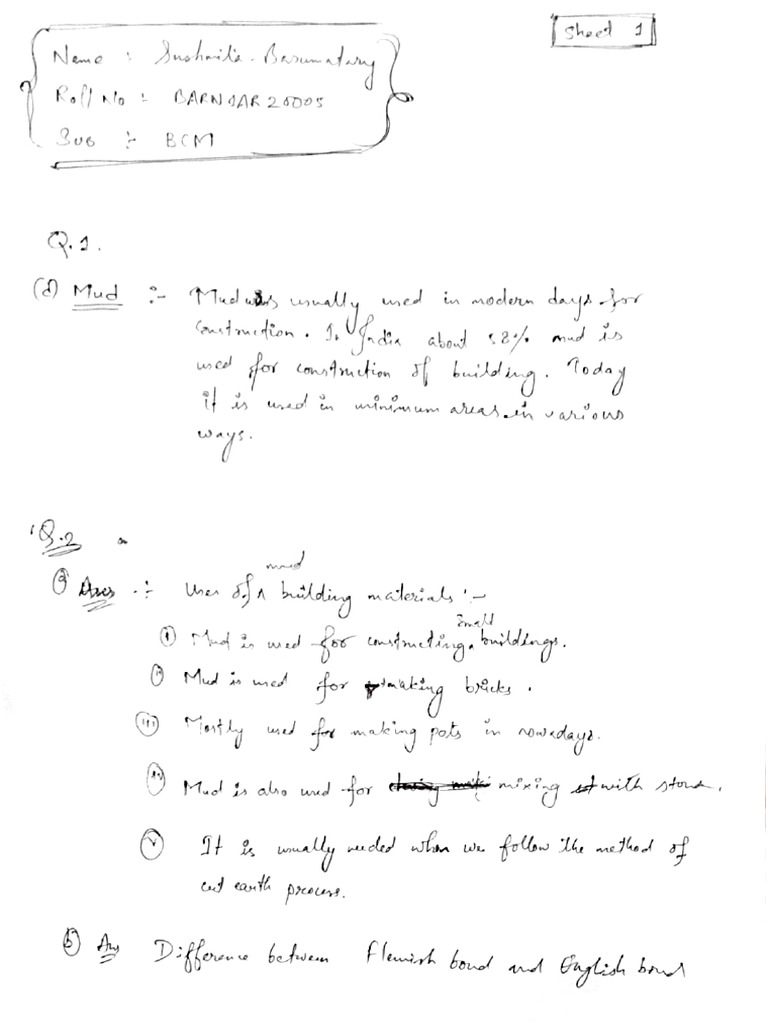 Sheet 1
Name : Sushaila Basumatary
Roll No :- BARN0AR20005
Sub :- BCM
Q.1.
(d) Mud :- Mud is usually used in modern days for
construction. In India about 58% mud is
used for construction of building. Today
it is used in minimum areas in various
ways.
Q.2
(a) Ans :- Uses of mud building materials :-
(i) Mud is used for constructing small buildings.
(ii) Mud is used for making bricks.
(iii) Mostly used for making pots in nowadays.
(iv) Mud is also used for mixing with stone.
(v) It is usually needed when we follow the method of
cut earth process.
(b) Ans Difference between Flemish bond and English bond